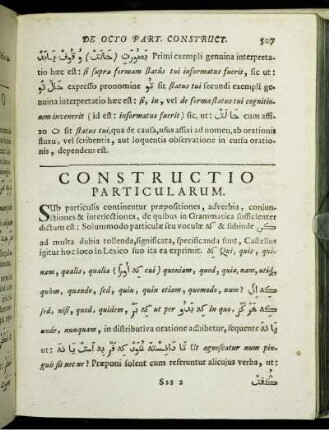 DE OCTO PART. CONSTRUCT. 507
Primi exempli genuina interpreta-
tio hæc est: si supra formam statûs tui informatus fuerit, sic ut:
expresso pronomine تو sit status tui secundi exempli ge-
nuina interpretatio hæc est: si, in, vel de forma status tui cognitio-
nem invenerit (id est: informatus fuerit) sic, ut: حالتت cum affi-
xo ت sit status tui, qua de causa, usus affixi ad nomen, ab orationis
fluxu, vel scribentis, aut loquentis observatione in cursu oratio-
nis, dependens est.
CONSTRUCTIO
PARTICULARUM.
Sub particulis continentur præpositiones, adverbia, conjun-
ctiones & interjectiones, de quibus in Grammatica sufficienter
dictum est: Solummodo particulæ seu voculæ که & subinde کي
ad multa dubia tollenda, significata, specificanda sunt, Castellus
igitur hoc loco in Lexico suo ita ea exprimit. که Qui, quis, qui-
nam, qualis, qualia cui) quoniam, quod, quia, nam, utiq,
quòm, quando, sed, quin, quin etiam, quomodo, num?
sed, nisi, quod, quidem, ut per in quo,
unde, nunquam, in distributiva oratione adhibetur, sequente یا نه
ut: Ut agnoscatur num pin-
guis sit nec ne? Præponi solent cum referuntur alicujus verba, ut:
Sss 2 گفت